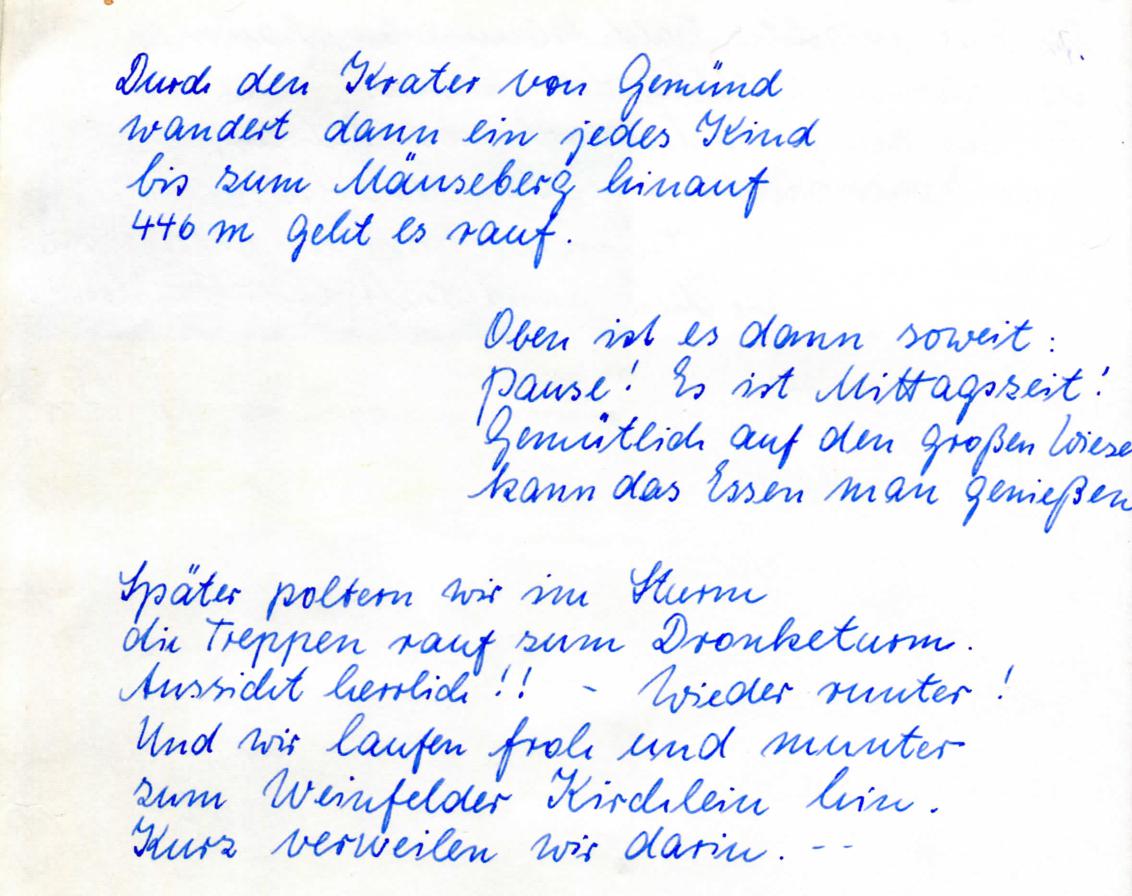 Durch den Krater von Gemünd
wandert dann ein jedes Kind
bis zum Mäuseberg hinauf
446 m geht es rauf.
Oben ist es dann soweit:
Pause! Es ist Mittagszeit!
Gemütlich auf den großen Wiese
kann das Essen man genießen
Später poltern wir im Sturm
die Treppen rauf zum Dronketurm.
Aussicht herrlich!! - Wieder runter!
Und wir laufen froh und munter
zum Weinfelder Kirchlein hin.
Kurz verweilen wir darin. --